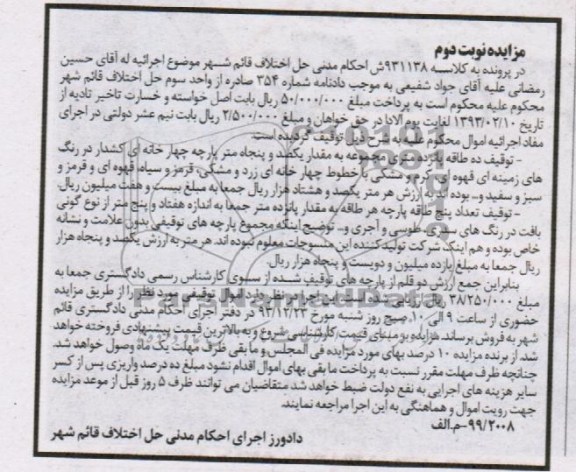 مزایده نوبت دوم
در پرونده به کلاسه ۹۳۱۱۳۸ش احکام مدنی حل اختلاف قائم شهر موضوع اجرائیه له آقای حسین
رمضانی علیه آقای جواد شفیعی به موجب دادنامه شماره ۳۵۴ صادره از واحد سوم حل اختلاف قائم شهر
محکوم علیه محکوم است به پرداخت مبلغ ۵۰/۰۰۰/۰۰۰ ریال بابت اصل خواسته و خسارت تاخیر تادیه از
تاریخ ۱۳۹۳/۰۲/۱۰ لغایت یوم الادا در حق خواهان و مبلغ ۲/۵۰۰/۰۰۰ ریال بابت نیم عشر دولتی در اجرای
مفاد اجرائیه اموال محکوم علیه به شرح ذیل توقیف گردیده است.
- توقیف ده طاقه پانزده متری مجموعه به مقدار یکصد و پنجاه متر پارچه چهار خانه ای کشدار در رنگ
های زمینه ای قهوه ای، کرم و مشکی با خطوط چهار خانه ای زرد و مشکی، قرمز و سیاه، قهوه ای و قرمز و
سبز و سفید و.. بوده که ارزش هر متر یکصد و هشتاد هزار ریال جمعا به مبلغ بیست و هفت میلیون ریال.
- توقیف تعداد پنج طاقه پارچه هر طاقه به مقدار پانزده متر جمعا به اندازه هفتاد و پنج متر از نوع گونی
بافت در رنگ های سبز، طوسی و آجری و.. توضیح اینکه مجموع پارچه های توقیفی بدون علامت و نشانه
خاص بوده و هم اینک شرکت تولید کننده این منسوجات معلوم نبوده اند. هر متر به ارزش یکصد و پنجاه هزار
ریال جمعا به مبلغ یازده میلیون و دویست و پنجاه هزار ریال.
بنابراین جمع ارزش دو قلم از پارچه های توقیف شده از سوی کارشناس رسمی دادگستری جمعا به
مبلغ ۳۸/۲۵۰/۰۰۰ ریال این اجرا در نظر دارد اموال توقیفی مورد نظر را از طریق مزایده
حضوری از ساعت ۹ الی ۱۰ صبح روز شنبه مورخ ۹۳/۱۲/۲۳ در دفتر اجرای احکام مدنی دادگستری قائم
شهر به فروش برساند. مزایده بر مبنای قیمت کارشناسی شروع و به بالاترین قیمت پیشنهادی فروخته خواهد
شد. از برنده مزایده ۱۰ درصد بهای مورد مزایده فی المجلس و ما بقی ظرف مهلت یک ماه وصول خواهد شد.
چنانچه ظرف مهلت مقرر نسبت به پرداخت ما بقی بهای اموال اقدام نشود مبلغ ده درصد واریزی پس از کسر
سایر هزینه های اجرایی به نفع دولت ضبط خواهد شد. متقاضیان می توانند ظرف ۵ روز قبل از موعد مزایده
جهت رویت اموال و هماهنگی به این اجرا مراجعه نمایند.
۹۹/۲۰۰۸-م.الف
دادورز اجرای احکام مدنی حل اختلاف قائم شهر